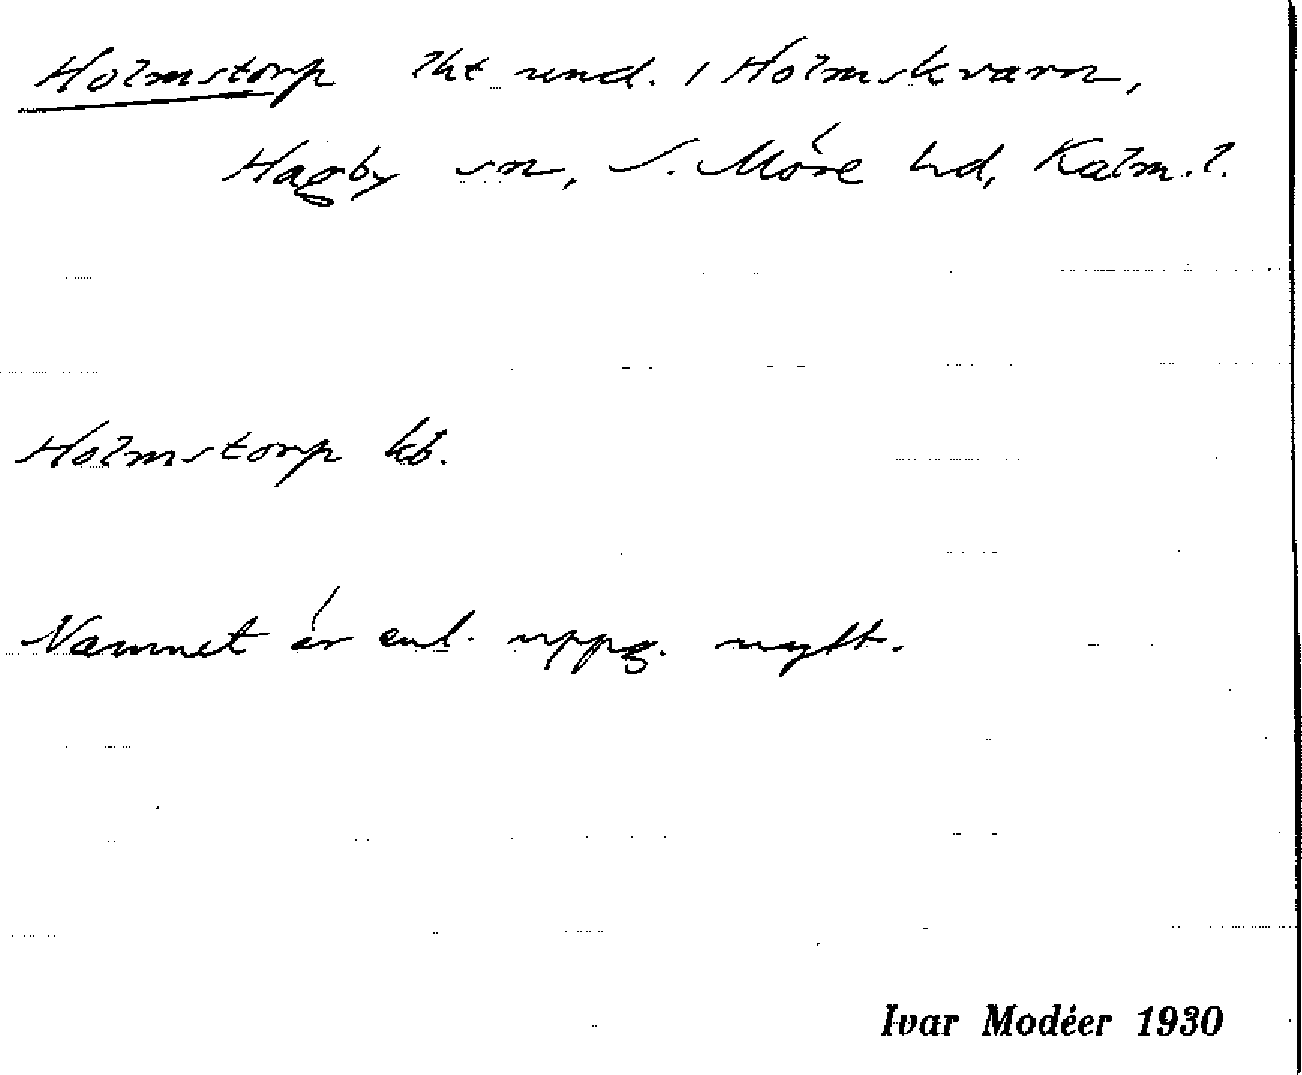 Holmstorp lht und. 1 Holmskvarn,
Hagby sn, S. Möre hd, Kalm. l.
Holmstorp kb.
Namnet är enl. uppg. nytt.
Ivar Modéer 1930